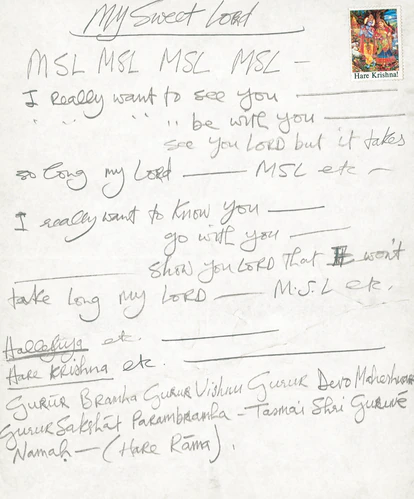 My Sweet Lord
Hare Krishna!
MSL MSL MSL MSL —
I Really want to see you ———
" " " " be with you ———
see you LORD but it takes
so long my Lord —— MSL etc —
I really want to Know you ——
go with you ——
show you LORD that it won't
take long my LORD —— M.S.L etc.
Halleluja etc. ———
Hare Krishna etc. ———
GURŪR BRAMHA GURUR VISHNU GURUR DEVO MAHESHWARA
GURUR SAKSHĀT PARAMBRAMHA — TASMAI SHRI GURUVE
NAMAH — (HARE RĀMA).